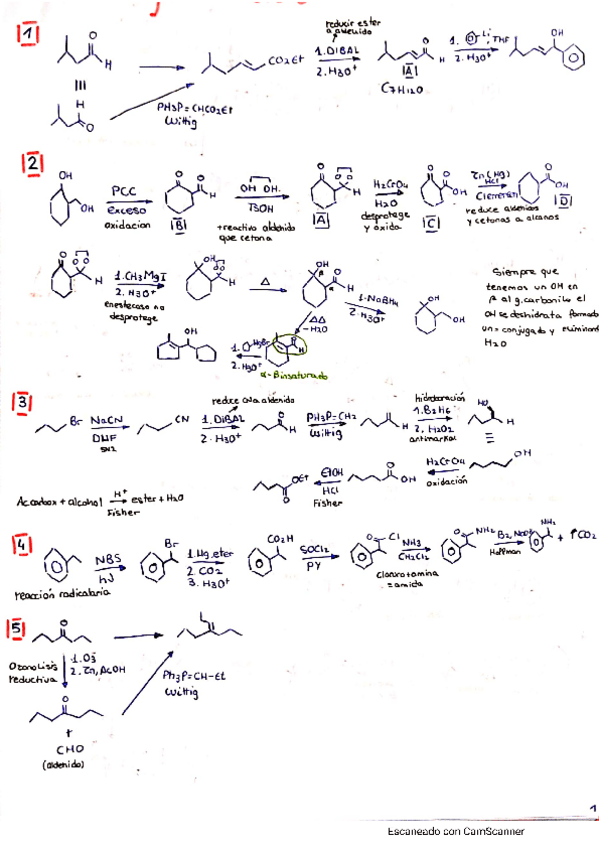 1
reducir ester
a aldehído
H
O
CO2Et
1. DiBAL
2. H3O+
O
H
|A|
C7H12O
1. Li, THF
2. H3O+
OH
III
H
O
PH3P=CHCO2Et
Wittig
2
OH
OH
PCC
exceso
oxidacion
O
O
H
|B|
OH OH
TSOH
+reactivo aldehido
que cetona
O
H
|A|
H2CrO4
H2O
desprotege
y oxida
O
O
OH
|C|
Zn(Hg)
HCl
Clemensen
reduce aldehidos
y cetonas a alcanos
O
OH
|D|
O
H
1. CH3MgI
2. H3O+
en este caso no
desprotege
OH
H
Δ
OH
O
β
α
H
1. NaBH4
2. H3O+
OH
OH
Siempre que
tenemos un OH en
β al g. carbonilo el
OH se deshidrata formado
un = conjugado y eliminando
H2O
ΔΔ
-H2O
OH
1. MgBr
2. H3O+
O
H
α-βinsaturado
3
reduce CN a aldehido
Br
NaCN
DMF
SN2
CN
1. DiBAL
2. H3O+
O
H
PH3P=CH2
Wittig
H
hidroboración
1. B2H6
2. H2O2
antimarkov
HO
H
=
O
OEt
EtOH
HCl
Fisher
O
OH
H2CrO4
oxidación
OH
Ac carbox + alcohol H+ ester + H2O
Fisher
4
NBS
hν
reacción radicalaria
Br
1. Mg, eter
2. CO2
3. H3O+
CO2H
SOCl2
PY
O
Cl
Cloruro + amina
= amida
NH3
CH2Cl2
O
NH2
Hoffman
NH2
+ ↑CO2
5
O
Ozonolisis
reductiva
1. O3
2. Zn, AcOH
Ph3P=CH-Et
Wittig
O
+
CHO
(aldehido)
1
Escaneado con CamScanner